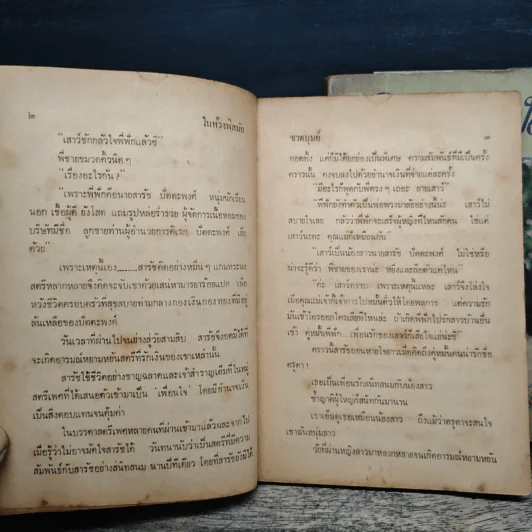 ๒
ในห้วงพิสมัย
"เสาว์ชักกลัวใจพี่พักแล้วซิ"
พี่ชายขมวดคิ้วนิดๆ
"เรื่องอะไรกัน?"
"เพราะพี่พักคือนายสารัช ปัตตะพงศ์ หนุ่มนักเรียน
นอก เชื้อผู้ดี ยังโสด แถมรูปหล่อร่ำรวย ผู้จัดการเนื้อหอมของ
บริษัทมีชื่อ ลูกชายท่านผู้อำนวยการดิเรก ปัตตะพงศ์ เสีย
ด้วย"
เพราะเหตุนี้เอง........สารัชคิดอย่างหมั่นๆ แกมทระนง
สตรีหลากหลายจึงคิดจะจับเขาด้วยเสน่ห์มารยาร้อยแปด เพื่อ
หวังชีวิตครอบครัวที่สุขสบายท่ามกลางกองเงินกองทองที่มีอยู่
ล้นเหลือของปัตตะพงศ์
วันเวลาที่ผ่านไปจนย่างสู่วัยสามสิบ สารัชจึงอดมิได้ที่
จะเกิดอารมณ์หยามหยันสตรีที่รักเงินของเขาเหล่านั้น
สารัชใช้ชีวิตอย่างชาญฉลาดและเจ้าสำราญเต็มที่ ในหมู่
สตรีเพศที่ได้เสนอตัวเข้ามาเป็น 'เพื่อนใจ' โดยมีอำนาจเงิน
เป็นสิ่งตอบแทนจนคุ้มค่า
ในบรรดาสตรีเพศหลายคนที่ผ่านเข้ามาแล้วผละจากไป
เมื่อรู้ว่าไม่อาจมัดใจสารัชได้ วันทนานับว่าเป็นสตรีที่มีความ
สัมพันธ์กับสารัชอย่างสนิทสนม นานปีทีเดียว โดยที่สารัชยังมิได้
ชาตบุษย์
๓
ทอดทิ้ง แต่ก็มิได้ยกย่องเป็นพิเศษ ความสัมพันธ์ที่มีเป็นครั้ง
คราวนั้น คงจบลงไปด้วยอำนาจเงินที่จ่ายแต่ละครั้ง
"มีอะไรก็พูดกับพี่ตรงๆ เถอะ สายเสาว์"
"พี่พักยังทำตัวเป็นพ่อพวงมาลัยอย่างงี้น่ะ เสาว์ไม่
สบายใจเลย กลัวว่าพี่พักจะเสร็จผู้หญิงที่ไหนสักคน ใช่แต่
เสาว์นะคะ คุณแม่ก็เหมือนกัน"
"เสาว์เป็นน้องสาวนายสารัช ปัตตะพงศ์ ไม่ใช่หรือ
น่าจะรู้ดีว่า พี่ชายของเราน่ะ หยิ่งและถือตัวแค่ไหน"
"ค่ะ เสาว์ทราบ เพราะเหตุนี้แหละ เสาว์จึงโล่งใจ
เมื่อคุณแม่เจ้ากี้เจ้าการไปหมั้นตัวไว้โดยพลการ แต่ความรัก
มันเข้าใครออกใครเสียที่ไหนละ ถ้าเกิดพี่พักไปรักสาวบ้านอื่น
เข้า คู่หมั้นพี่พัก....เพื่อนรักของเสาว์ก็เสียใจแย่นะซี"
คราวนั้นสารัชถอนหายใจยาวเมื่อคิดถึงคู่หมั้นคนน่ารักชื่อ
ดรุตา!
เธอเป็นเพื่อนรักสนิทสนมกับน้องสาว
ซ้ำญาติผู้ใหญ่ก็สนิทกันมานาน
เขาเอ็นดูเธอเหมือนน้องสาว ถึงแม้ว่าดรุตาจะสนใจ
เขาฉันหนุ่มสาว
วัยที่ผ่านหญิงสาวมาหลากหลายจนเกิดอารมณ์หยามหยัน